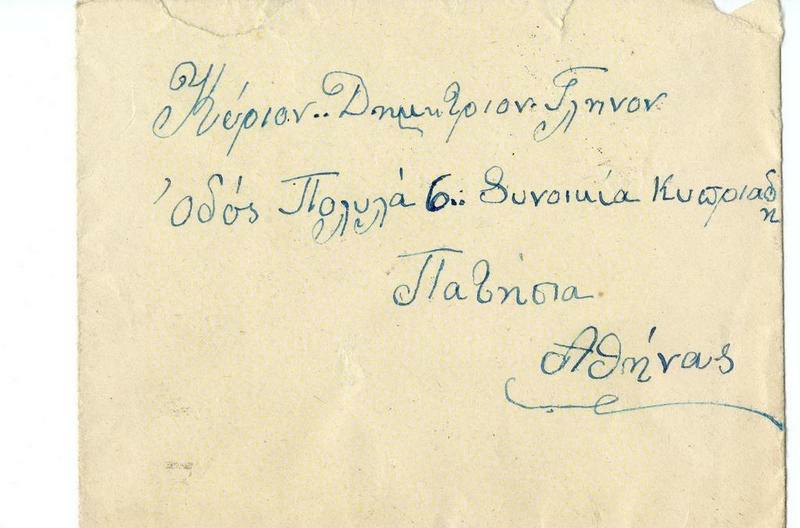 Κύριον.. Δημητριον. Γληνον.
Ὁδός Πολυλά 6.. Συνοικία Κυπριαδη
Πατήσια
Αθήνας